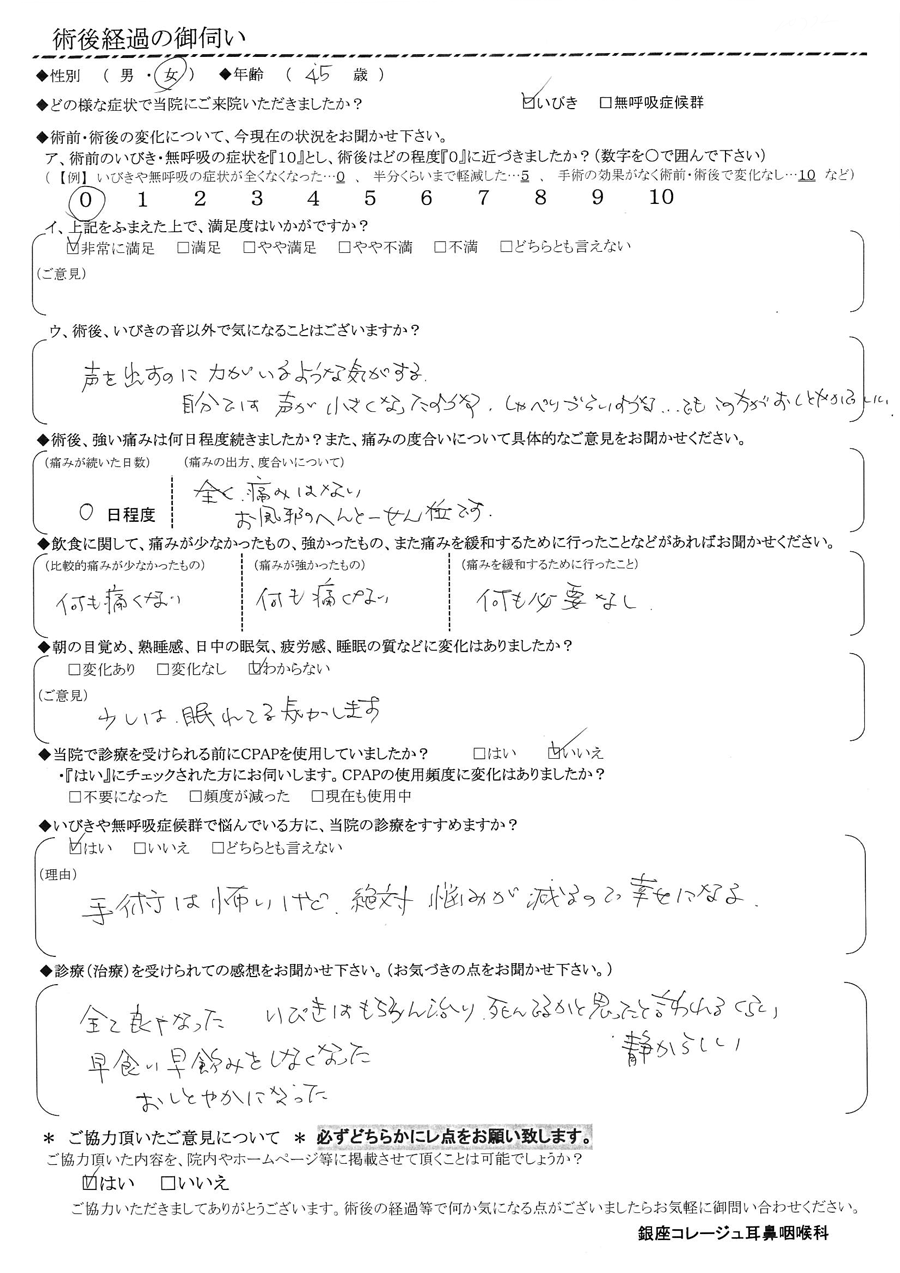 術後経過の御伺い
◆性別 ( 男 ・ 女 ) ◆年齢 ( 45 歳 )
◆どの様な症状で当院にご来院いただきましたか? ☑いびき □無呼吸症候群
◆術前・術後の変化について、今現在の状況をお聞かせ下さい。
ア、術前のいびき・無呼吸の症状を『10』とし、術後はどの程度『0』に近づきましたか?(数字を○で囲んで下さい)
(【例】いびきや無呼吸の症状が全くなくなった…0 、 半分くらいまで軽減した…5 、 手術の効果がなく術前・術後で変化なし…10 など)
0 1 2 3 4 5 6 7 8 9 10
イ、上記をふまえた上で、満足度はいかがですか?
☑非常に満足 □満足 □やや満足 □やや不満 □不満 □どちらとも言えない
(ご意見)
ウ、術後、いびきの音以外で気になることはございますか?
声を出すのに力がいるような気がする.
自分では声が小さくなったのかな.しゃべりづらいのかな...でもこの方がおしとやかでいい.
◆術後、強い痛みは何日程度続きましたか?また、痛みの度合いについて具体的なご意見をお聞かせください。
(痛みが続いた日数) (痛みの出方、度合いについて)
全く、痛みはない
0 日程度 お風邪のへんとーせん位です.
◆飲食に関して、痛みが少なかったもの、強かったもの、また痛みを緩和するために行ったことなどがあればお聞かせください。
(比較的痛みが少なかったもの) (痛みが強かったもの) (痛みを緩和するために行ったこと)
何も痛くない 何も痛くない 何も必要なし.
◆朝の目覚め、熟睡感、日中の眠気、疲労感、睡眠の質などに変化はありましたか?
□変化あり □変化なし ☑わからない
(ご意見)
少しは、眠れてる気がします
◆当院で診療を受けられる前にCPAPを使用していましたか? □はい ☑いいえ
・『はい』にチェックされた方にお伺いします。CPAPの使用頻度に変化はありましたか?
□不要になった □頻度が減った □現在も使用中
◆いびきや無呼吸症候群で悩んでいる方に、当院の診療をすすめますか?
☑はい □いいえ □どちらとも言えない
(理由)
手術は怖いけど、絶対 悩みが減るので幸せになる.
◆診療(治療)を受けられての感想をお聞かせ下さい。(お気づきの点をお聞かせ下さい。)
全て良くなった いびきはもちろん治り.死んでるかと思ったと言われるくらい
静からしい
早食い早飲みをしなくなった
おしとやかになった
* ご協力頂いたご意見について * 必ずどちらかにレ点をお願い致します。
ご協力頂いた内容を、院内やホームページ等に掲載させて頂くことは可能でしょうか?
☑はい □いいえ
ご協力いただきましてありがとうございます。術後の経過等で何か気になる点がございましたらお気軽に御問い合わせください。
銀座コレージュ耳鼻咽喉科